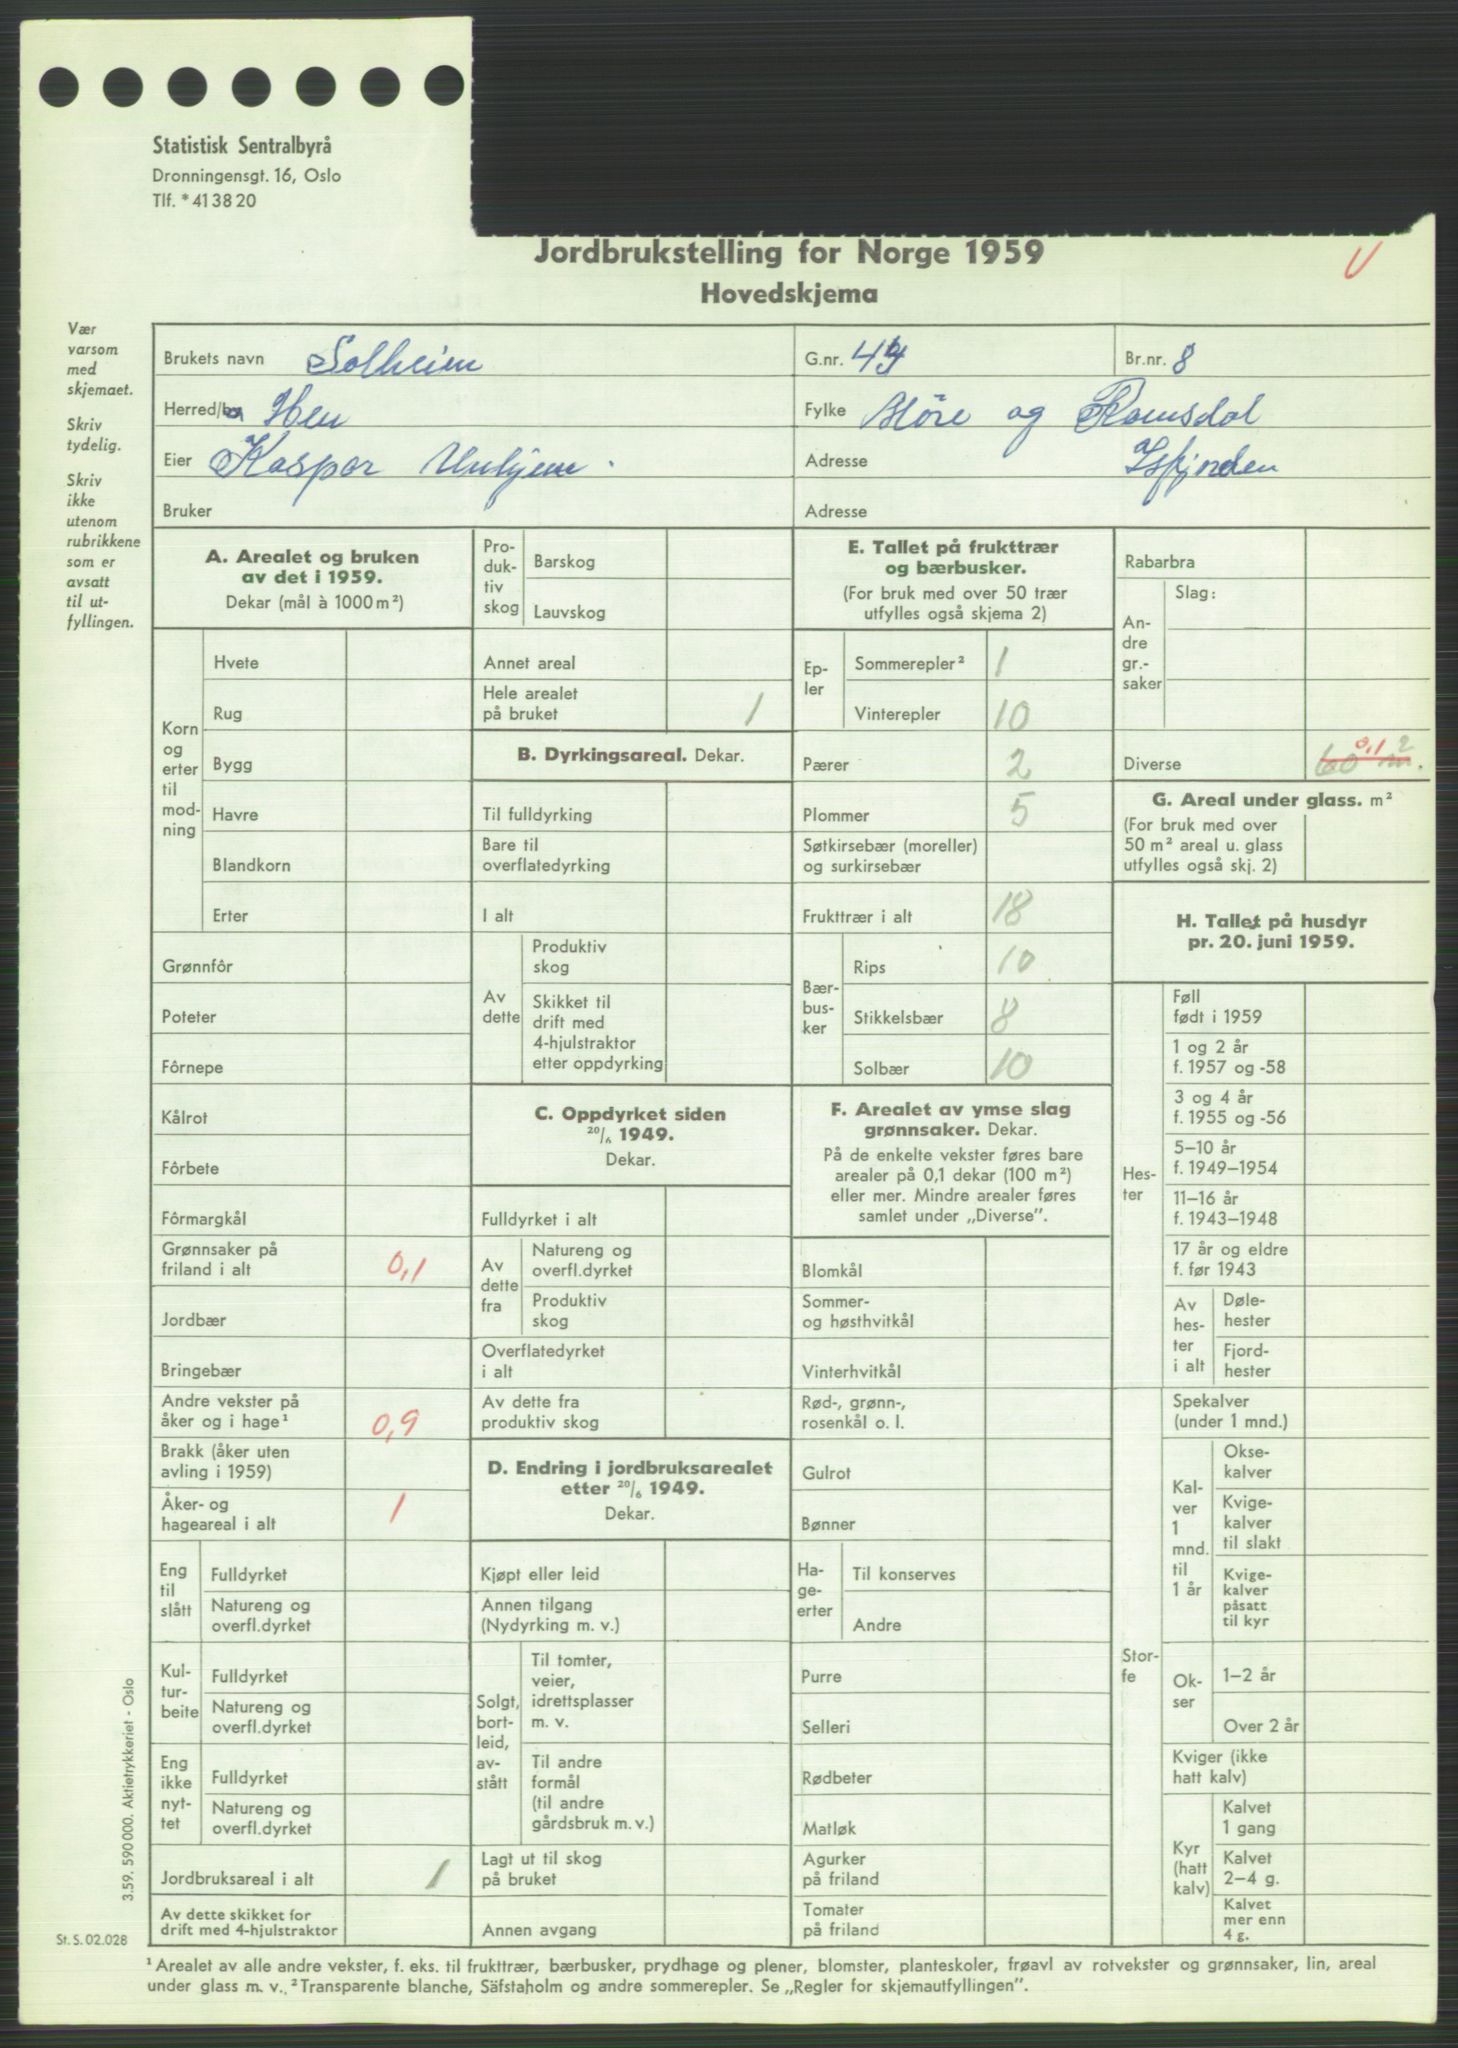 Statistisk Sentralbyrå
Dronningensgt. 16, Oslo
Tlf. *41 38 20
Jordbrukstelling for Norge 1959
Hovedskjema
Vær
varsom
med
skjemaet.
Skriv
tydelig.
Skriv
ikke
utenom
rubrikkene
som er
avsatt
til ut-
fyllingen.
Brukets navn Solheim
G.nr. 44
Br.nr. 8
Herred/ Hen
Fylke Møre og Romsdal
Eier Kaspar Unhjem.
Adresse Isfjorden
Bruker
Adresse
A. Arealet og bruken
av det i 1959.
Dekar (mål à 1000 m²)
Korn
og
erter
til
mod-
ning
Hvete
Rug
Bygg
Havre
Blandkorn
Erter
Grønnfôr
Poteter
Fôrnepe
Kålrot
Fôrbete
Fôrmargkål
Grønnsaker på
friland i alt 0,1
Jordbær
Bringebær
Andre vekster på
åker og i hage¹ 0,9
Brakk (åker uten
avling i 1959)
Åker- og
hageareal i alt 1
Eng
til
slått
Fulldyrket
Natureng og
overfl.dyrket
Kul-
tur-
beite
Fulldyrket
Natureng og
overfl.dyrket
Eng
ikke
nyt-
tet
Fulldyrket
Natureng og
overfl.dyrket
Jordbruksareal i alt 1
Av dette skikket for
drift med 4-hjulstraktor
Pro-
duk-
tiv
skog
Barskog
Lauvskog
Annet areal
Hele arealet
på bruket 1
B. Dyrkingsareal. Dekar.
Til fulldyrking
Bare til
overflatedyrking
I alt
Av
dette
Produktiv
skog
Skikket til
drift med
4-hjulstraktor
etter oppdyrking
C. Oppdyrket siden
20/6 1949.
Dekar.
Fulldyrket i alt
Av
dette
fra
Natureng og
overfl.dyrket
Produktiv
skog
Overflatedyrket
i alt
Av dette fra
produktiv skog
D. Endring i jordbruksarealet
etter 20/6 1949.
Dekar.
Kjøpt eller leid
Annen tilgang
(Nydyrking m. v.)
Solgt,
bort-
leid,
av-
stått
Til tomter,
veier,
idrettsplasser
m. v.
Til andre
formål
(til andre
gårdsbruk m. v.)
Lagt ut til skog
på bruket
Annen avgang
E. Tallet på frukttrær
og bærbusker.
(For bruk med over 50 trær
utfylles også skjema 2)
Ep-
ler
Sommerepler² 1
Vinterepler 10
Pærer 2
Plommer 5
Søtkirsebær (moreller)
og surkirsebær
Frukttrær i alt 18
Bær-
bus-
ker
Rips 10
Stikkelsbær 8
Solbær 10
F. Arealet av ymse slag
grønnsaker. Dekar.
På de enkelte vekster føres bare
arealer på 0,1 dekar (100 m²)
eller mer. Mindre arealer føres
samlet under „Diverse”.
Blomkål
Sommer-
og høsthvitkål
Vinterhvitkål
Rød-, grønn-,
rosenkål o. l.
Gulrot
Bønner
Ha-
ge-
erter
Til konserves
Andre
Purre
Selleri
Rødbeter
Matløk
Agurker
på friland
Tomater
på friland
Rabarbra
An-
dre
gr.-
saker
Slag:
Diverse 60 m². 0,1
G. Areal under glass. m²
(For bruk med over
50 m² areal u. glass
utfylles også skj. 2)
H. Tallet på husdyr
pr. 20. juni 1959.
Hes-
ter
Føll
født i 1959
1 og 2 år
f. 1957 og -58
3 og 4 år
f. 1955 og -56
5–10 år
f. 1949–1954
11–16 år
f. 1943–1948
17 år og eldre
f. før 1943
Av
hes-
ter
i alt
Døle-
hester
Fjord-
hester
Stor-
fe
Spekalver
(under 1 mnd.)
Kal-
ver
1
mnd.
til
1 år
Okse-
kalver
Kvige-
kalver
til slakt
Kvige-
kalver
påsatt
til kyr
Ok-
ser
1–2 år
Over 2 år
Kviger (ikke
hatt kalv)
Kyr
(hatt
kalv)
Kalvet
1 gang
Kalvet
2–4 g.
Kalvet
mer enn
4 g.
3.59. 590 000. Aktietrykkeriet - Oslo
St. S. 02.028
¹ Arealet av alle andre vekster, f. eks. til frukttrær, bærbusker, prydhage og plener, blomster, planteskoler, frøavl av rotvekster og grønnsaker, lin, areal
under glass m. v. ² Transparente blanche, Säfstaholm og andre sommerepler. Se „Regler for skjemautfyllingen”.